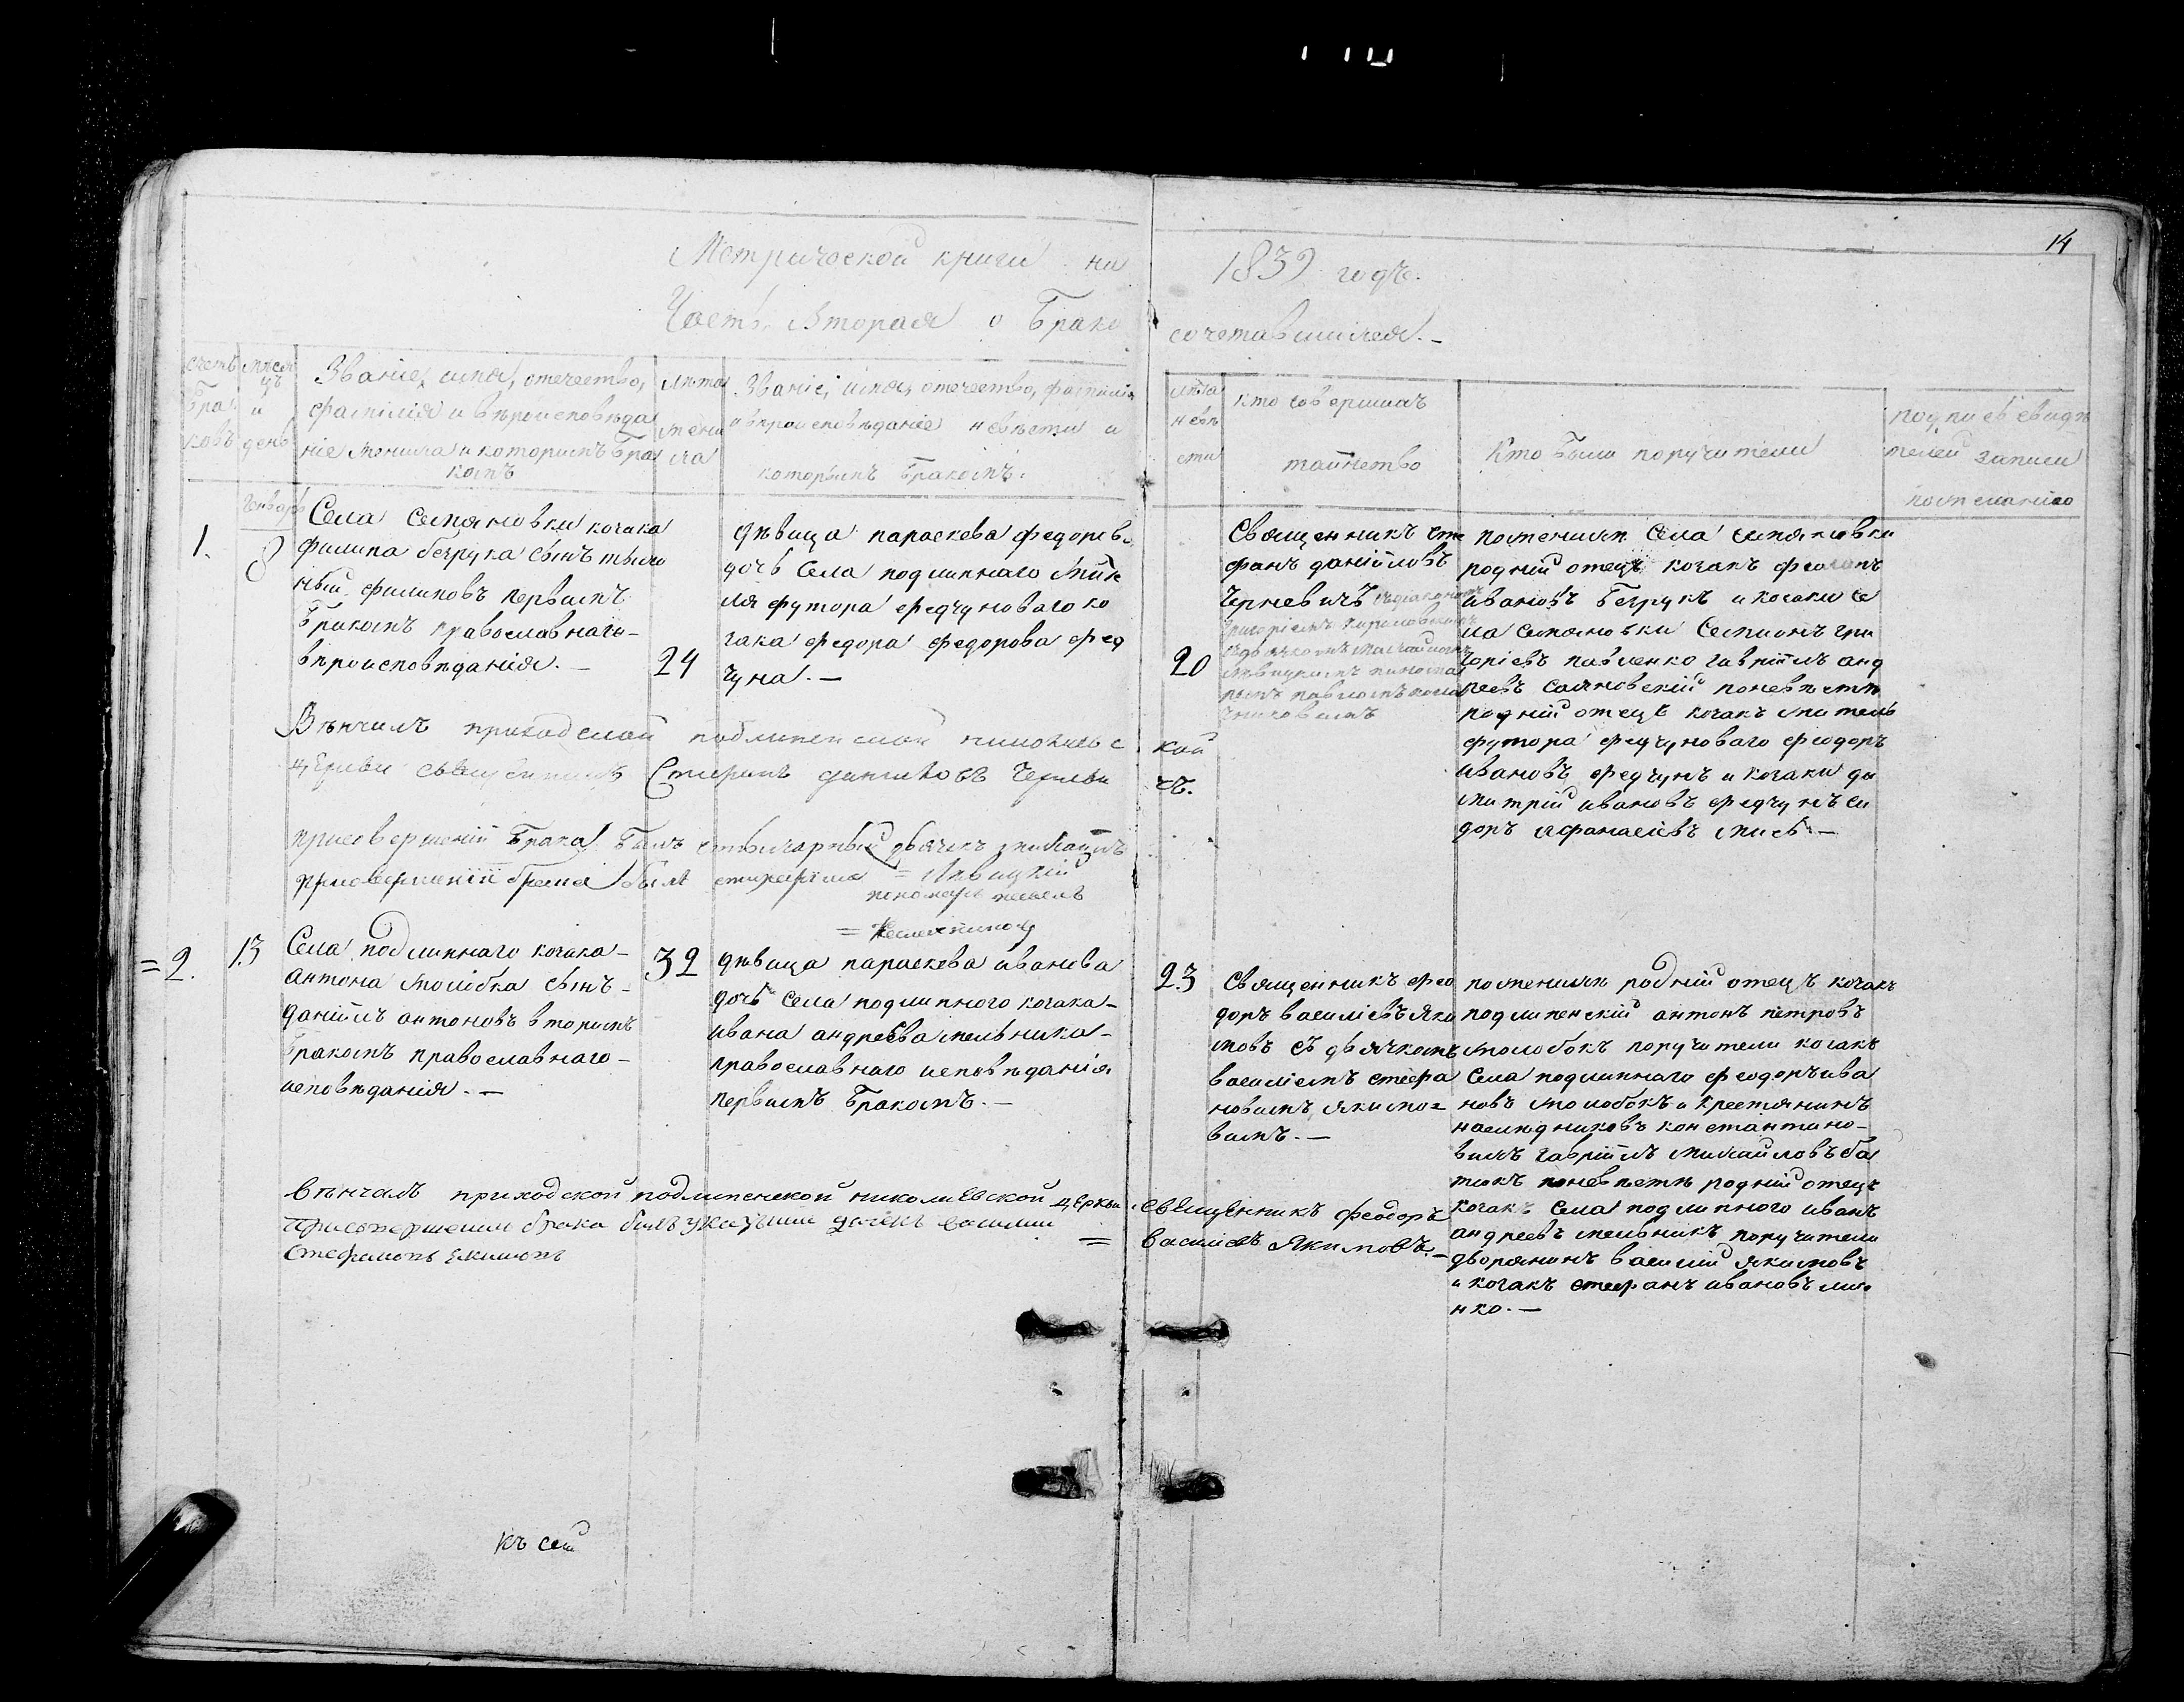 14
Метрической книги на 1839 годъ.
Часть Вторая о Брако сочетавшихся. –
счетъ Браковъ
Мѣсяцъ и день
Званіе, имя, отечество,
фамилія и вѣроисповѣда
ніе жениха и которимъ Бра
комъ
лѣта жениха
Званіе, имя, отечество, фамилія
и вѣроисповѣданіе невѣсти и
которымъ Бракомъ.
лѣта невѣсти
кто совершилъ
таинство
Кто Были поручители
подписъ свидѣ
телей записи
по желанію
1.
Генварь
8
Села Семяновки козака
филипа безрука сынъ
филиповъ Первимъ
Бракомъ православнаго –
вѣроисповѣданія. –
24
дѣвица параскева федоров.
дочь Села подлипнаго
ля футора федчуноваго ко
зака федора федорова фед
чуна. –
20
Священникъ Сте
фанъ даніиловъ
Черневичъ
пожениха Села Семяновки
родній отецъ козакъ
Ивановъ Безрукъ и козаки се
ла Семяновки Семионъ гри
горіевъ павленко гавріилъ анд
реевъ Саяновскій поневѣстѣ
родній отецъ козакъ житель
футора федчуноваго феодоръ
Ивановъ федчунъ и козаки ди
митрій ивановъ федчунъ си
доръ афанасіевъ –
Вѣнчалъ приходской подлипенской николаевс кой
церкви священникъ Стефанъ даниловъ Черневи чъ.
присовершеніи Брака Билъ дьячекъ михаилъ
присовершеніи брака билъ = Лѣвицкій
пономарь павелъ
=
= 2.
13
Села подлипнаго козака –
антона молібка сынъ –
даніилъ антоновъ вторимъ
Бракомъ православнаго –
исповѣданія. –
32
дѣвица параскева иванова
дочь Села подлипного козака –
ивана андреева мельника –
православнаго исповѣданія
Первимъ Бракомъ. –
23
Священникъ фео
доръ василіевъ Яки
мовъ съ дьячкомъ
василіемъ стефа
новимъ якимо=
вимъ. –
поженихѣ родній отецъ козакъ
подлипенскій антонъ петровъ
молобокъ поручители козакъ
Села подлипнаго феодоръ ива
новъ молобокъ и крестянинъ
наслюдниковъ константино –
вихъ гавріилъ михайловъ ба
тикъ поневѣстѣ родній отецъ
козакъ Села подлипного иванъ
андреевъ мельникъ поручители
дворянинъ василій якимовъ
и козакъ стефанъ ивановъ
нко. –
вѣнчалъ приходской подлипенской николаевской церкви священникъ феодоръ
присовершении брака билъ дячекъ василий = василіевъ Якимовъ. –
Стефановъ Якимовъ
Къ сей